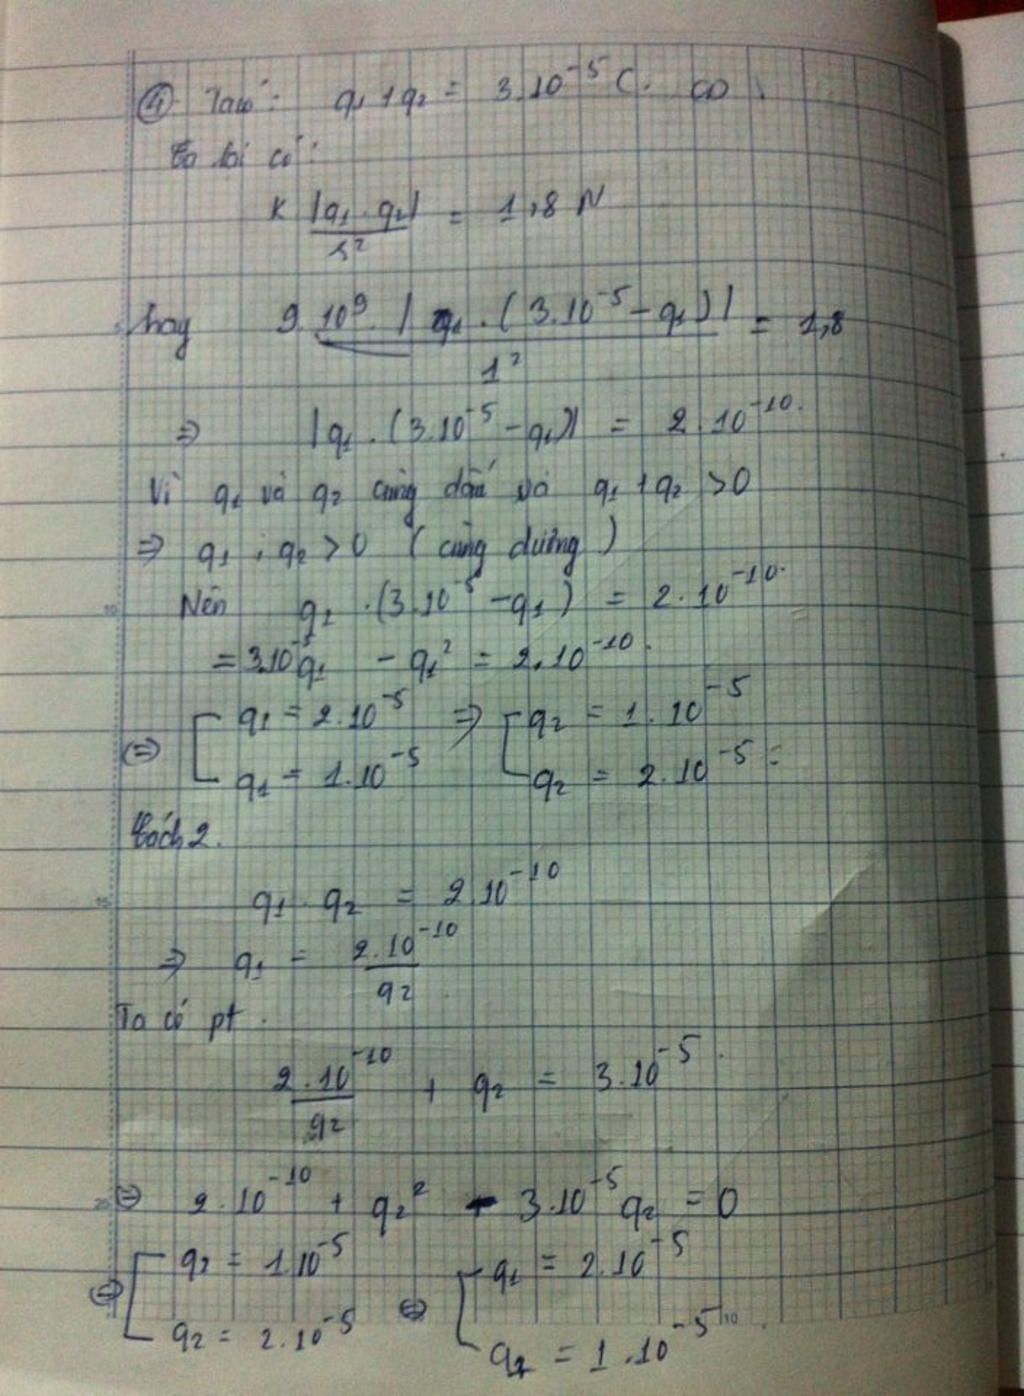 ④ Ta có: q₁ + q₂ = 3.10⁻⁵ C.
Ta lại có:
K |q₁ . q₂| / r² = 1,8 N
hay 9.10⁹. | q₁ . (3.10⁻⁵ - q₁) | / 1² = 1,8
⇒ |q₁ . (3.10⁻⁵ - q₁)| = 2.10⁻¹⁰.
Vì q₁ và q₂ cùng dấu và q₁ + q₂ > 0
⇒ q₁, q₂ > 0 (cùng dương)
Nên q₁ .(3.10⁻⁵ - q₁) = 2.10⁻¹⁰.
= 3.10⁻⁵q₁ - q₁² = 2.10⁻¹⁰.
⇔ [ q₁ = 2.10⁻⁵ ⇒ [ q₂ = 1.10⁻⁵
q₁ = 1.10⁻⁵ q₂ = 2.10⁻⁵
Cách 2.
q₁ . q₂ = 2.10⁻¹⁰
⇒ q₁ = 2.10⁻¹⁰ / q₂
Ta có pt.
2.10⁻¹⁰ / q₂ + q₂ = 3.10⁻⁵.
⇔ 2.10⁻¹⁰ + q₂² - 3.10⁻⁵ q₂ = 0
⇔ [ q₂ = 1.10⁻⁵ ⇔ [ q₁ = 2.10⁻⁵
q₂ = 2.10⁻⁵ q₁ = 1.10⁻⁵